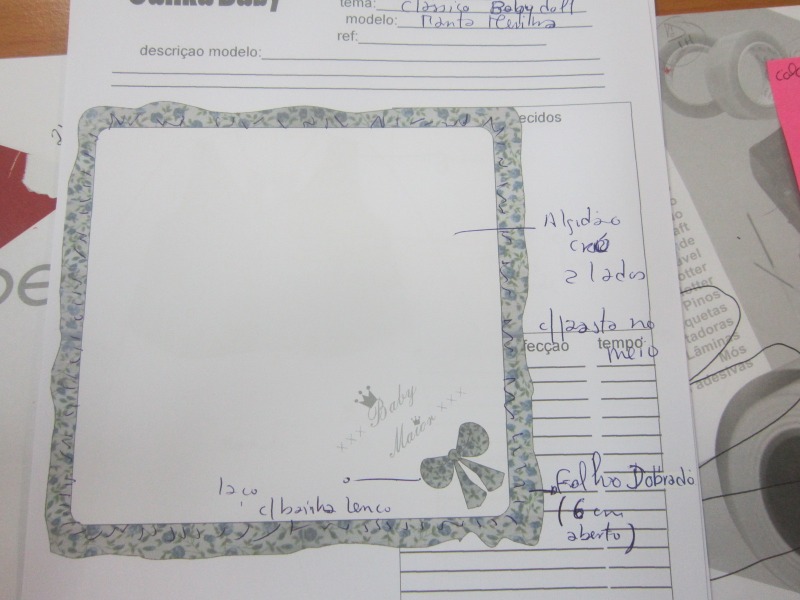 Baby
tema: Classico Baby doll
modelo: Manta Menina
ref:
descriçao modelo:
ecidos
Algidão
crú
2 lados
c/pasta no
meio
fecção tempo
Baby
xxx Maior xxx
laço
c/bainha lenco
Folho Dobrado
(6 cm
aberto)
Pinos
quetas
tadoras
Lâminas
Mós
adesivas